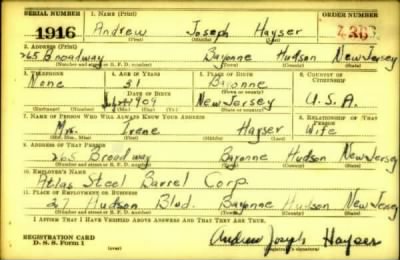 SERIAL NUMBER 1. NAME (Print) ORDER NUMBER
1916 Andrew Joseph Hayser
(First) (Middle) (Last)
2. ADDRESS (Print)
265 Broadway Bayonne Hudson New Jersey
(Number and street or R. F. D. number) (Town) (County) (State)
3. TELEPHONE 4. AGE IN YEARS 5. PLACE OF BIRTH 6. COUNTRY OF CITIZENSHIP
None 31 Bayonne
DATE OF BIRTH (Town or county)
1909 New Jersey U.S.A.
(Exchange) (Number) (Mo.) (Day) (Yr.) (State or country)
7. NAME OF PERSON WHO WILL ALWAYS KNOW YOUR ADDRESS 8. RELATIONSHIP OF THAT PERSON
Mrs. Irene Hayser Wife
(Mr., Mrs., Miss) (First) (Middle) (Last)
9. ADDRESS OF THAT PERSON
265 Broadway Bayonne Hudson New Jersey
(Number and street or R. F. D. number) (Town) (County) (State)
10. EMPLOYER'S NAME
Atlas Steel Barrel Corp.
11. PLACE OF EMPLOYMENT OR BUSINESS
27 Hudson Blvd. Bayonne Hudson New Jersey
(Number and street or R. F. D. number) (Town) (County) (State)
I AFFIRM THAT I HAVE VERIFIED ABOVE ANSWERS AND THAT THEY ARE TRUE.
REGISTRATION CARD
D. S. S. FORM 1 Andrew Joseph Hayser
(Registrant's signature)